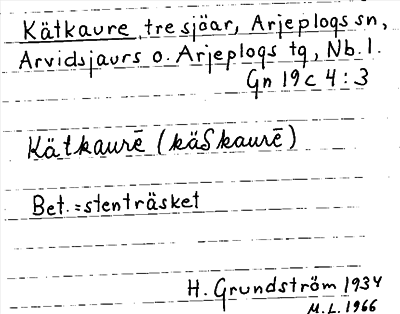 Kätkaure, tre sjöar, Arjeplogs sn,
Arvidsjaurs o. Arjeplogs tg, Nb. l.
Gn 19c 4:3
Kätkaurē (käSkaurē)
Bet. = stenträsket
H. Grundström 1934
M.L. 1966